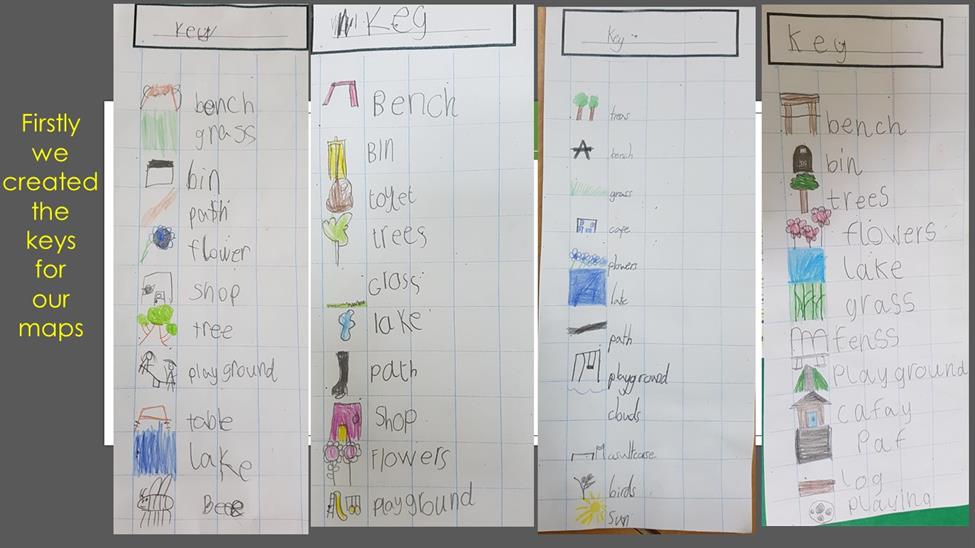 Firstly
we
created
the
keys
for
our
maps
Key
bench
grass
bin
path
flower
shop
tree
playground
table
lake
Bee
Key
Bench
BIN
toylet
trees
Grass
lake
path
Shop
Flowers
playground
Key
trees
bench
grass
cafe
flowers
lake
path
playground
clouds
birds
sun
Key
bench
bin
trees
flowers
lake
grass
fenss
Playground
cafay
Paf
log
playing